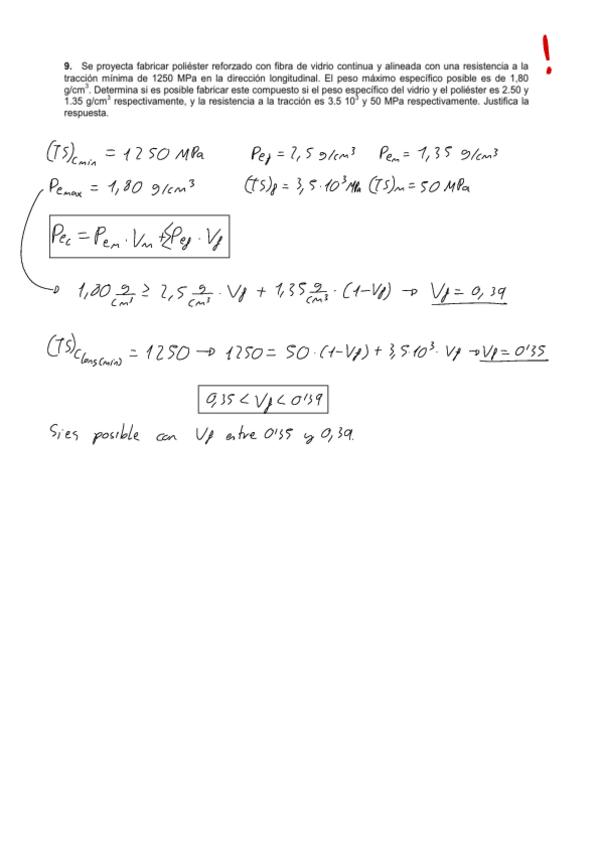 9. Se proyecta fabricar poliéster reforzado con fibra de vidrio continua y alineada con una resistencia a la
tracción mínima de 1250 MPa en la dirección longitudinal. El peso máximo específico posible es de 1,80
g/cm³. Determina si es posible fabricar este compuesto si el peso específico del vidrio y el poliéster es de 2.50 y
1.35 g/cm³ respectivamente, y la resistencia a la tracción es 3.5 10³ y 50 MPa respectivamente. Justifica la
respuesta.
!
(TS)cmin = 1250 MPa Pef = 2,5 g/cm³ Pem = 1,35 g/cm³
Pemax = 1,80 g/cm³ (TS)f = 3,5·10³ MPa (TS)m = 50 MPa
Pec = Pem · Vm + Pef · Vf
1,80 g/cm³ ≥ 2,5 g/cm³ · Vf + 1,35 g/cm³ · (1-Vf) → Vf = 0,39
(TS)c long(min) = 1250 → 1250 = 50·(1-Vf) + 3,5·10³ · Vf → Vf = 0'35
0,35 < Vf < 0'39
Si es posible con Vf entre 0'35 y 0,39.